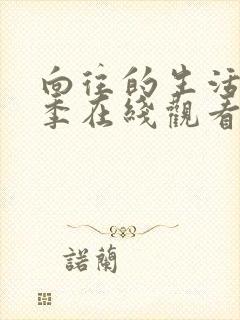 向往的生活
季在綫觀看
諾蘭